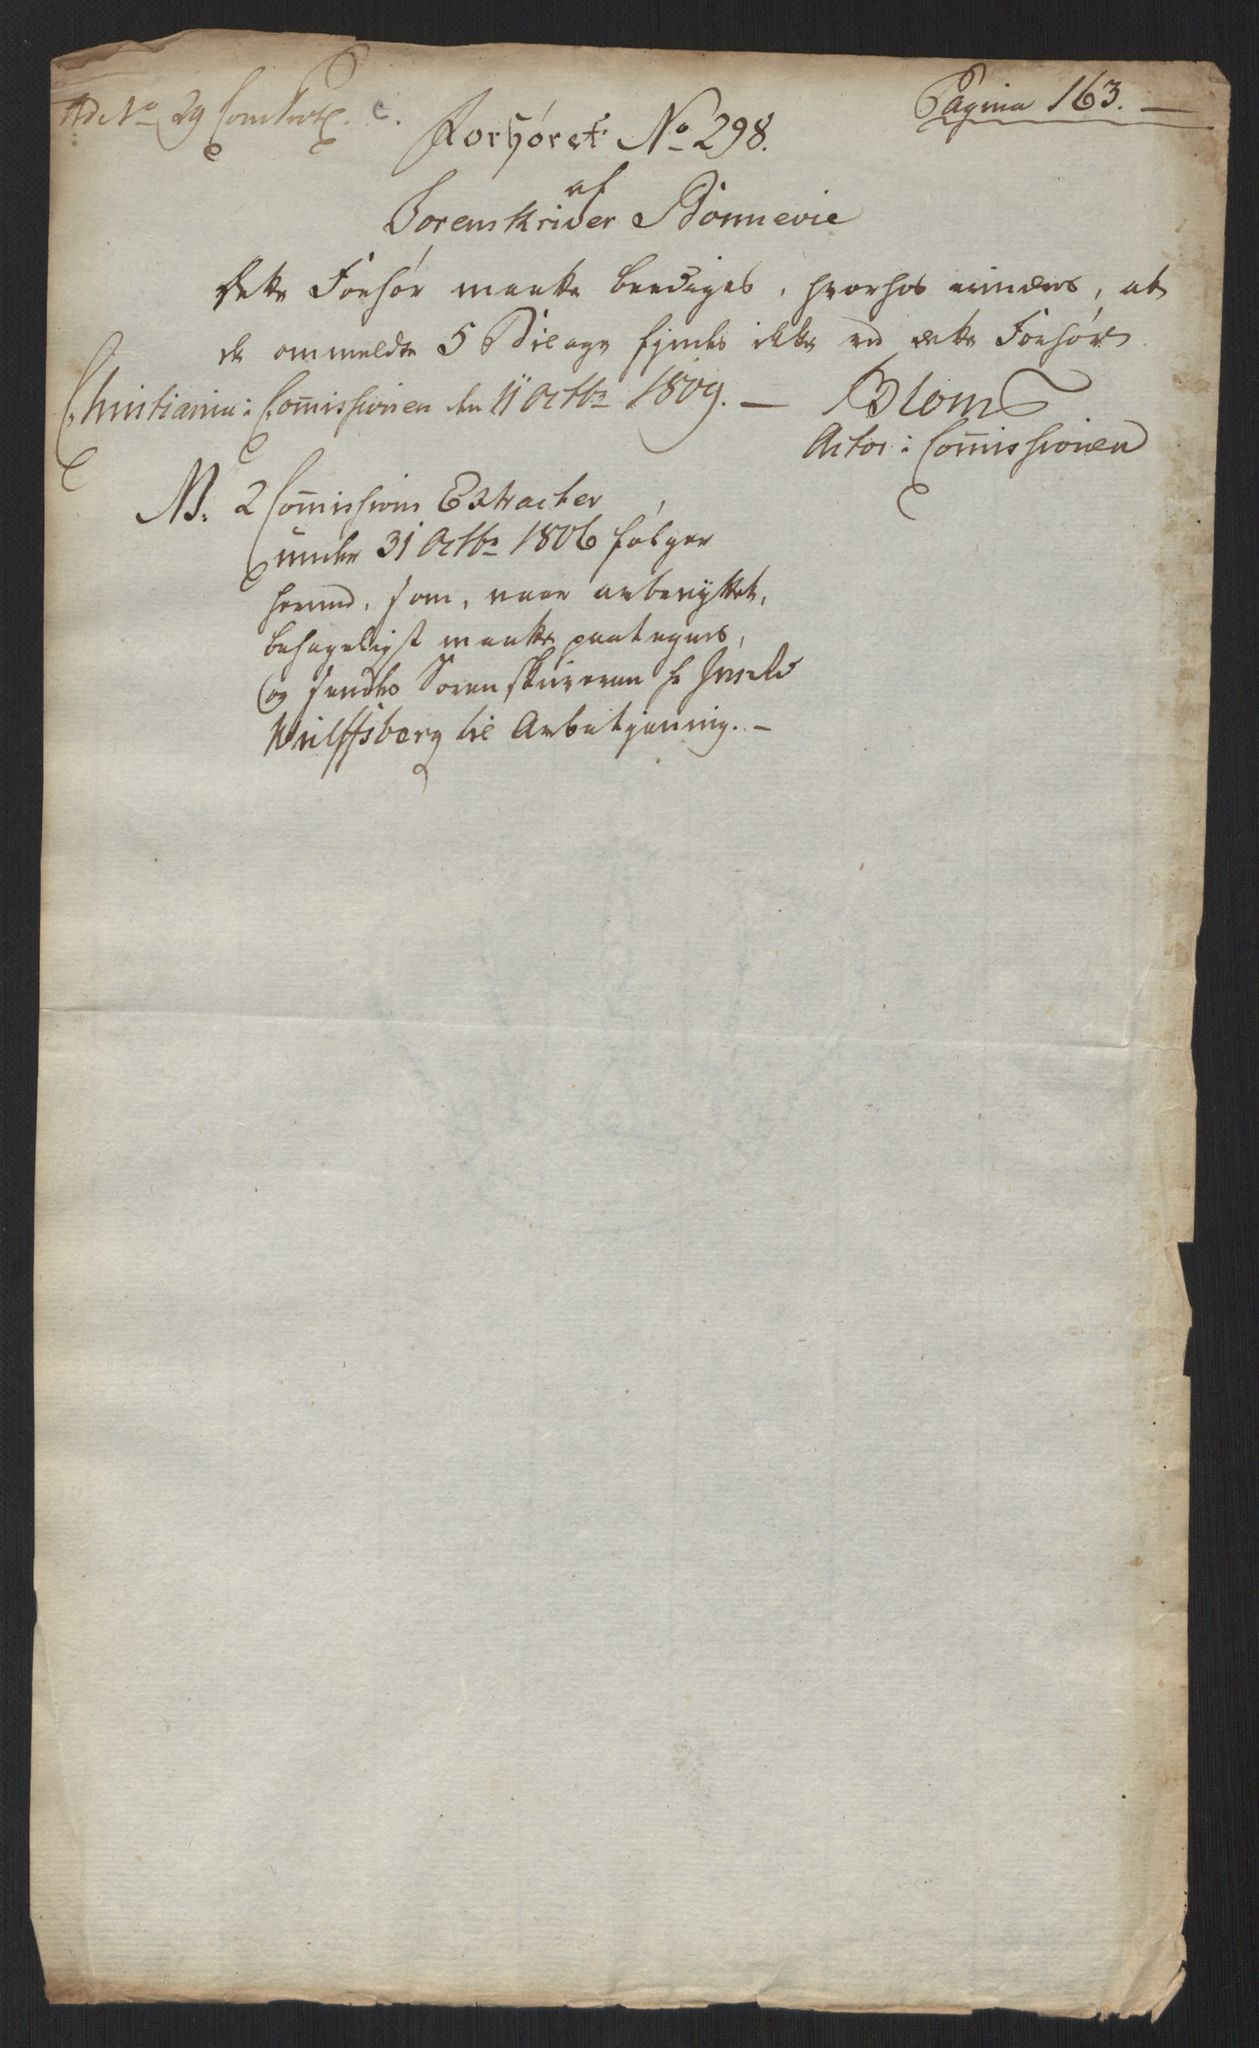 Ad No 29
Pagina 163. —
Forhøret No 298.
af
Sorenskriver Bonnevie
Dette Forhør maatte beediges, hvorhos erindres, at
de ommeldte 5 Bilage fjndes ikke ved dette Forhør
Christiania: Commissionen den 11 Octbr 1809. — Blom
Actor i Commissionen
NB. 2 Commissions Extracter
under 31 Octbr 1806 følger
herved, som, naar afbenyttet,
behageligst maatte paategnes,
og sendes Sorenskriveren
Wulffsberg til Afbetjening. —